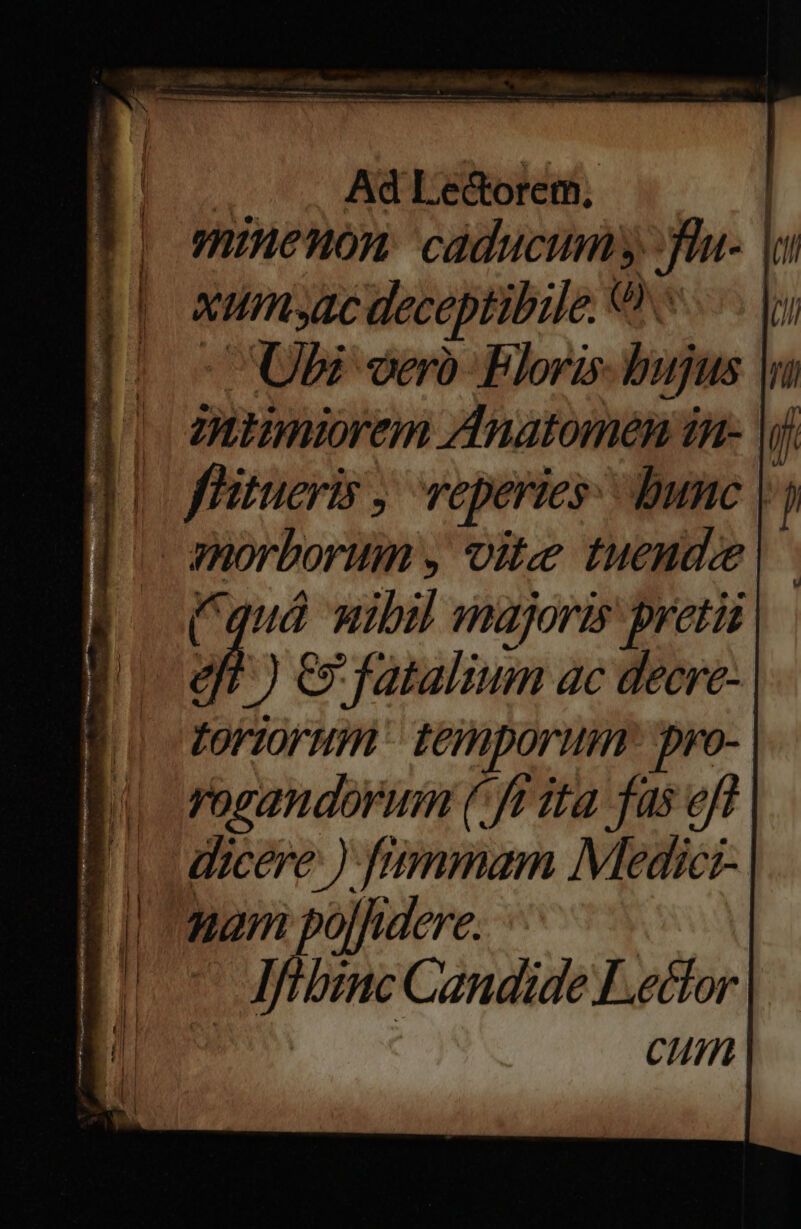 Ad Lectorem,
minenon caducum, flu-
xum, ac deceptibile.
Ubi verò Floris hujus
intimiorem Anatomen in-
ſtitueris, reperies hunc
morborum, vitæ tuendæ
(quâ nihil majoris pretii
eſt) & fatalium ac decre-
toriorum temporum pro-
rogandorum (ſi ita fas eſt
dicere) ſummam Medici-
nam poſſidere.
Iſthinc Candide Lector
cum